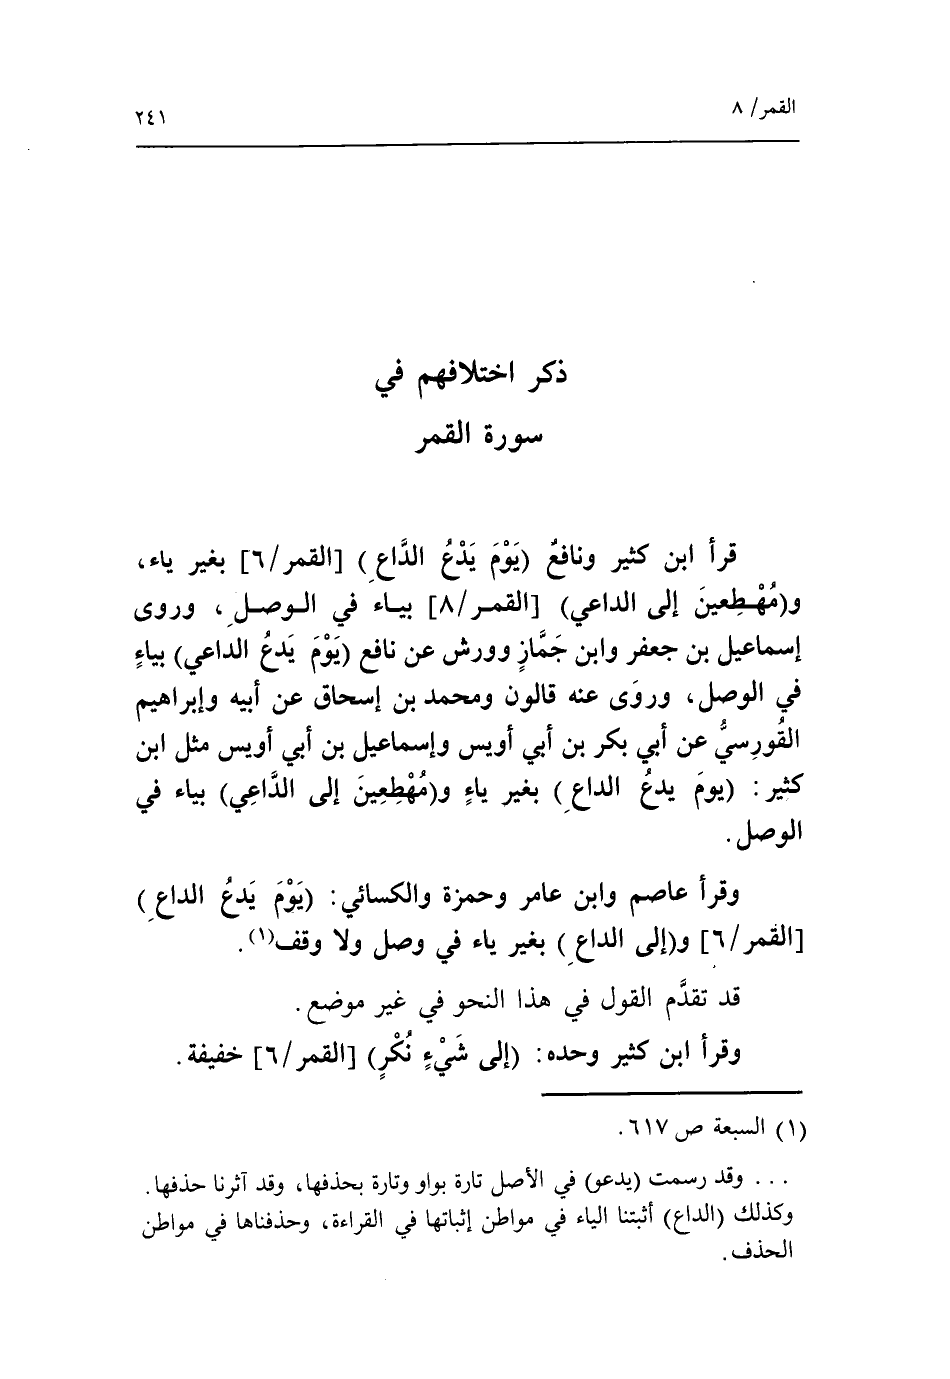 القمر/ ٨
٢٤١
ذكر اختلافهم في
سورة القمر
قرأ ابن كثير ونافعٌ (يَوْمَ يَدْعُ الدَّاعِ) [القمر/٦] بغير ياء،
و(مُهْطِعينَ إلى الداعي) [القمر/٨] بياء في الوصل، وروى
إسماعيل بن جعفر وابن جَمَّازٍ وورش عن نافع (يَوْمَ يَدعُ الداعي) بياءٍ
في الوصل، وروَى عنه قالون ومحمد بن إسحاق عن أبيه وإبراهيم
القُورِسيُّ عن أبي بكر بن أبي أويس وإسماعيل بن أبي أويس مثل ابن
كثير: (يومَ يدعُ الداعِ) بغير ياءٍ و(مُهْطِعِينَ إلى الدَّاعِي) بياء في
الوصل.
وقرأ عاصم وابن عامر وحمزة والكسائي: (يَوْمَ يَدعُ الداعِ)
[القمر/٦] و(إلى الداعِ) بغير ياء في وصل ولا وقف(١).
قد تقدَّم القول في هذا النحو في غير موضع.
وقرأ ابن كثير وحده: (إلى شَيْءٍ نُكْرٍ) [القمر/٦] خفيفة.
(١) السبعة ص ٦١٧.
... وقد رسمت (يدعو) في الأصل تارة بواو وتارة بحذفها، وقد آثرنا حذفها.
وكذلك (الداع) أثبتنا الياء في مواطن إثباتها في القراءة، وحذفناها في مواطن
الحذف.